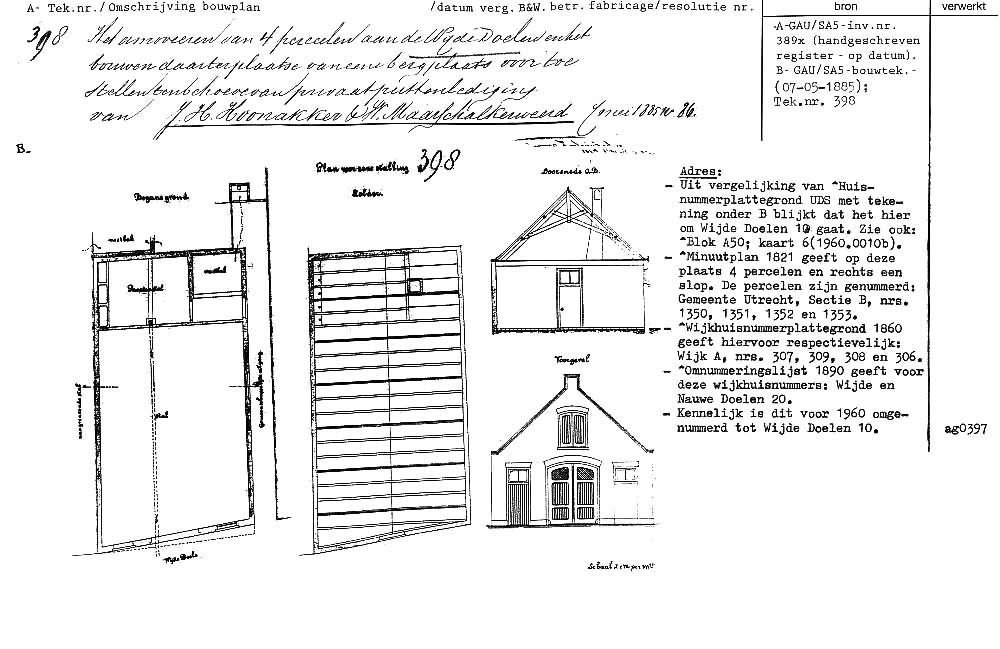 A- Tek.nr./Omschrijving bouwplan /datum verg. B&W. betr. fabricage/resolutie nr. bron verwerkt
398 Het amoveeren van 4 perceelen aan de Wijde Doelen en het
bouwen daarterplaatse van eene bergplaats voor toe
stellen ten behoeve van privaatputtenlediging
van J. H. Hoonakker & W. Maarschalkerweerd 1885 nr. 86.
A-GAU/SA5-inv.nr.
389x (handgeschreven
register - op datum).
B- GAU/SA5-bouwtek.-
(07-05-1885);
Tek.nr. 398
B-
Plan voor een stalling 398
Begane grond
Zolder
Doorsnede A.B.
mestbak
Paardenstal
mestbak
stal
Wijde Doele
Voorgevel
Schaal 2 cm per Mtr
Adres:
- Uit vergelijking van ^Huis-
nummerplattegrond UDS met teke-
ning onder B blijkt dat het hier
om Wijde Doelen 10 gaat. Zie ook:
^Blok A50; kaart 6(1960.0010b).
- ^Minuutplan 1821 geeft op deze
plaats 4 percelen en rechts een
slop. De percelen zijn genummerd:
Gemeente Utrecht, Sectie B, nrs.
1350, 1351, 1352 en 1353.
- ^Wijkhuisnummerplattegrond 1860
geeft hiervoor respectievelijk:
Wijk A, nrs. 307, 309, 308 en 306.
- ^Omnummeringslijst 1890 geeft voor
deze wijkhuisnummers: Wijde en
Nauwe Doelen 20.
- Kennelijk is dit voor 1960 omge-
nummerd tot Wijde Doelen 10.
ag0397